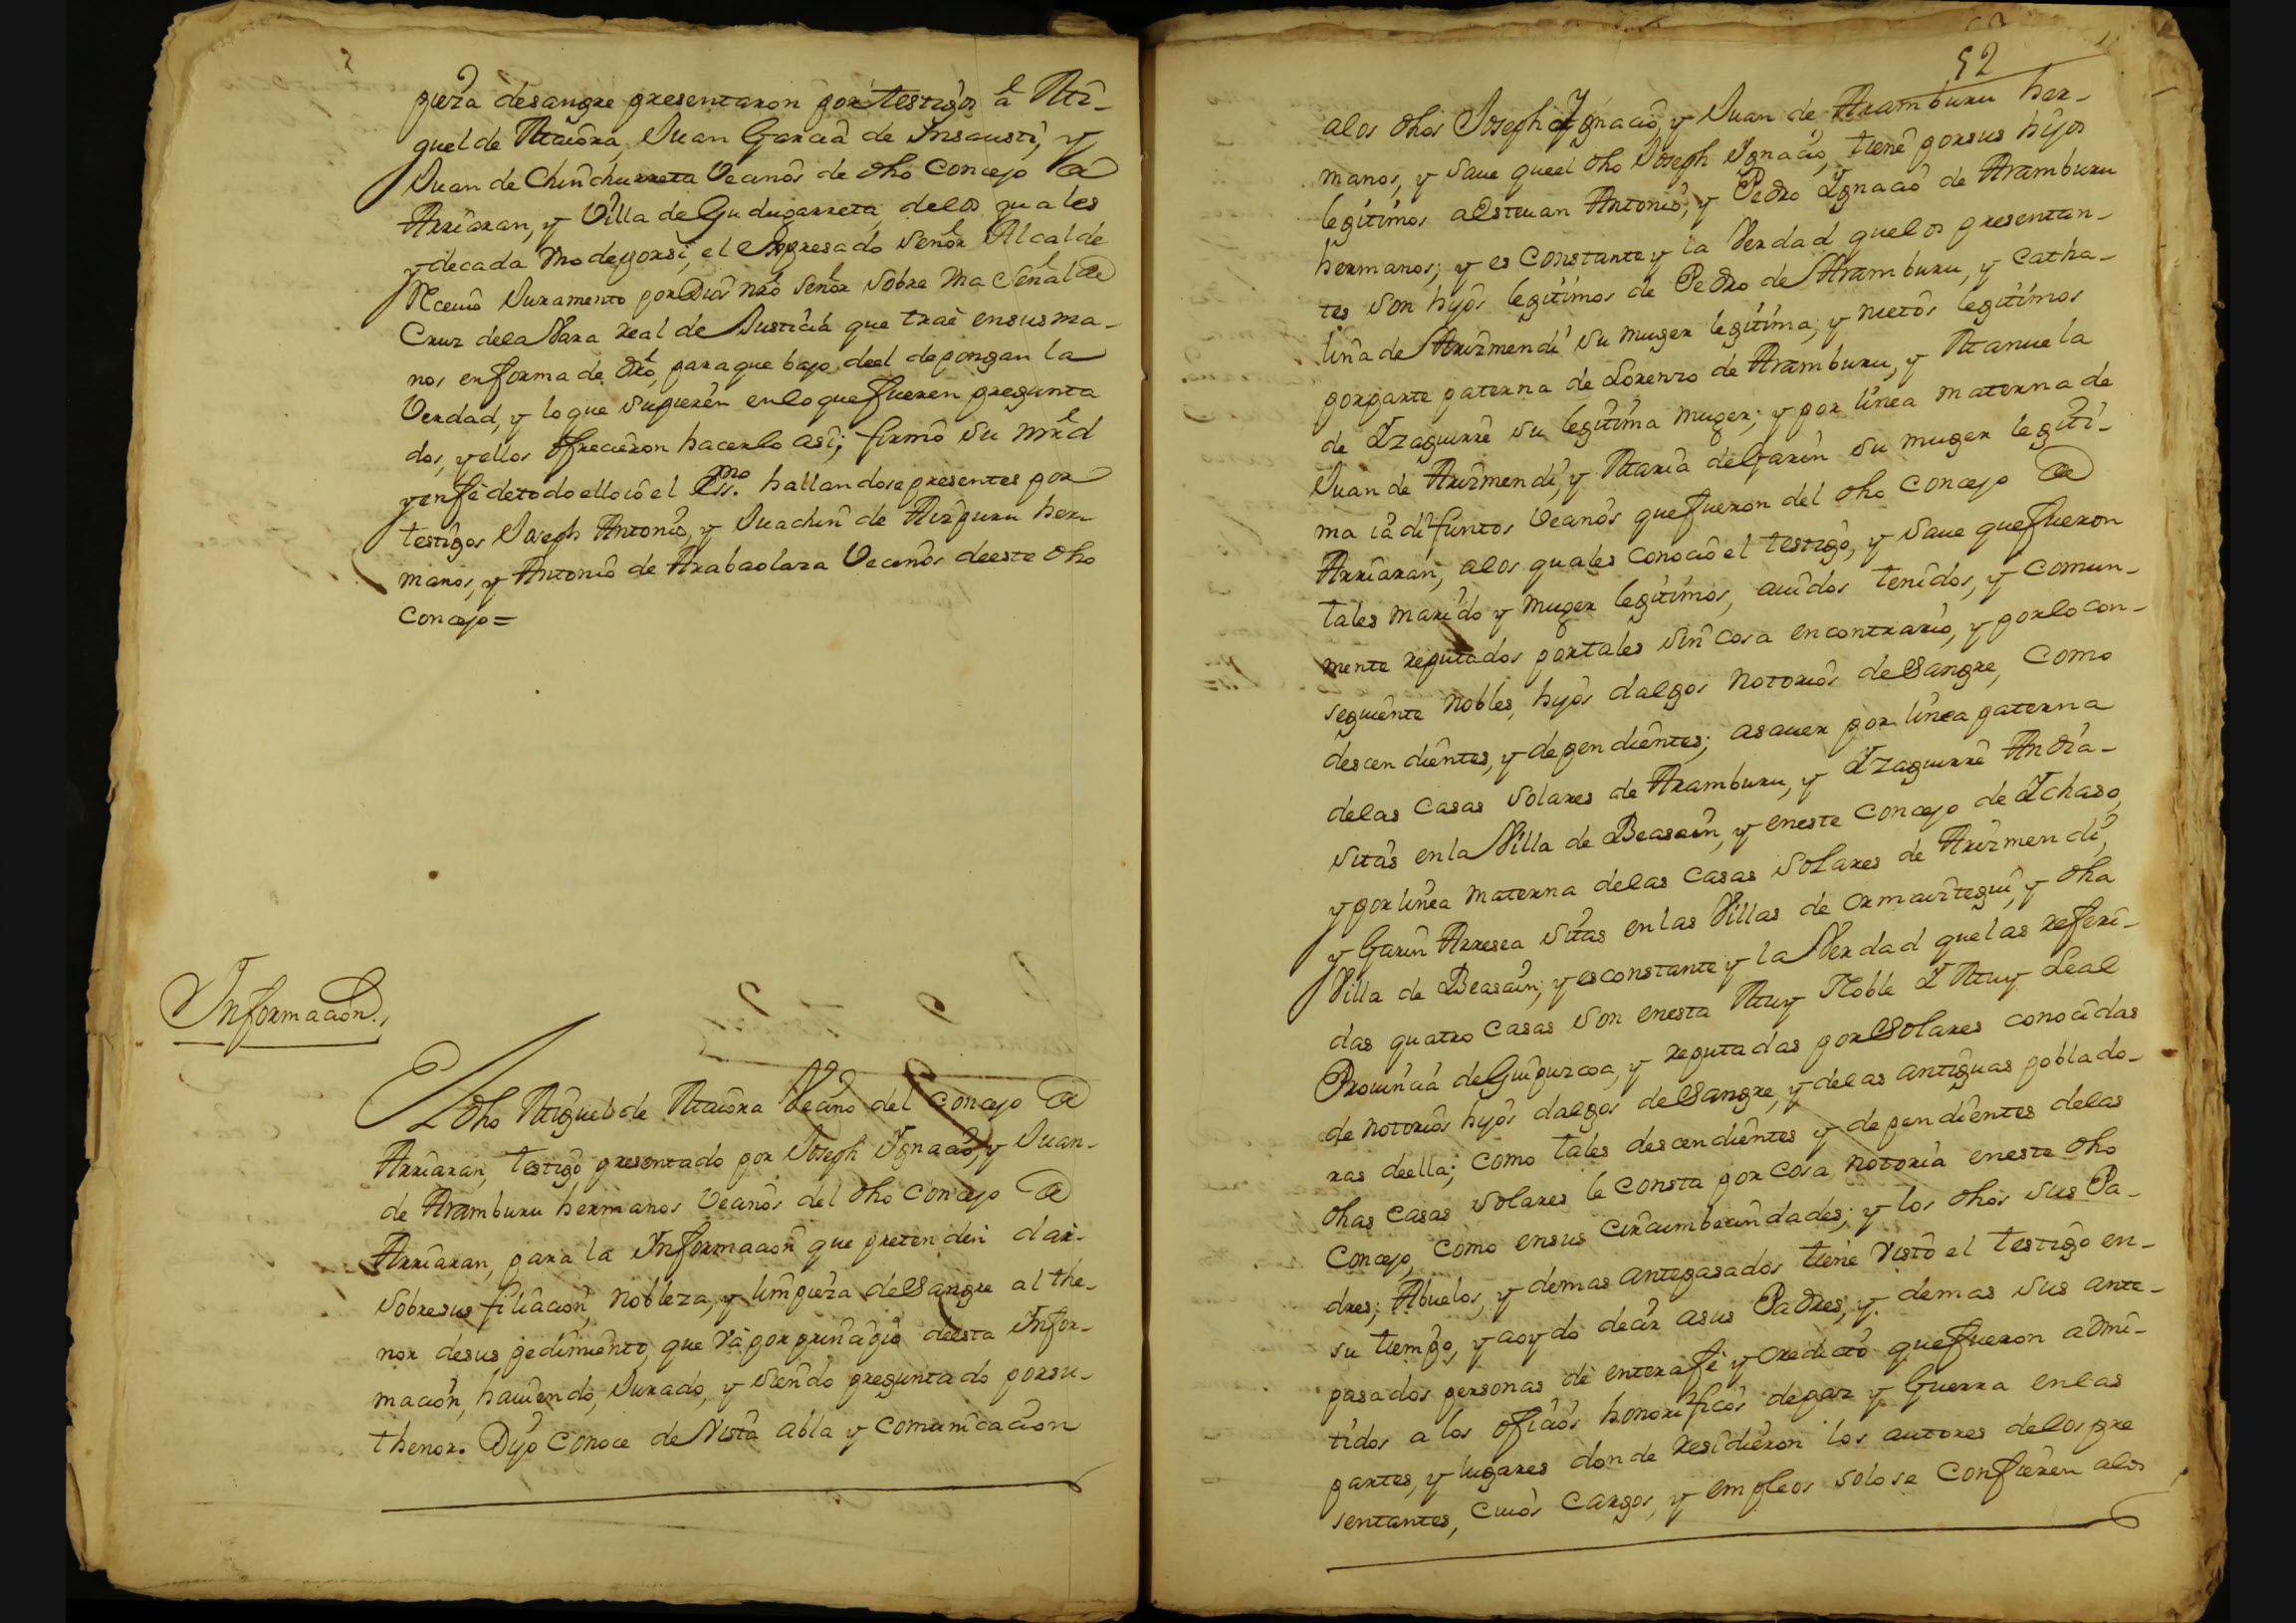 pieza desangre presentaron por testigos â Mi-
guel de Maiôra, Juan Garcia de Insausti, y
Juan de Chinchurreta Vecinôs de dho Concejo de
Arriaran, y Villa de Gudugarreta, delos quales
y decada Vno depor si, el expresado Señor Alcalde
Recivio Juramento por Dios nrô Señor sobre Vna Señal de
Cruz dela Vara real de Justicia que trae ensus ma-
nos enforma de dro, para que bajo deel depongan la
Verdad, y lo que supieren enloque fueren pregunta
dos, yellos ofrecieron hacerlo asi; firmô su mrd
yenfe detodo ello iô el Essno. hallandose presentes por
testigos Joseph Antonio, y Juachin de Aizpuru her-
manos, y Antonio de Arabaolaza Vecinôs deeste dho
Concejo=
Informacion.
El dho Miguel de Maiôra Vecino del Concejo de
Arriaran, testigo presentado por Joseph Ignacio, y Juan-
de Aramburu hermanos Vecinôs del dho Concejo de
Arriaran, para la Informacion que pretenden dar-
sobresus filiacion, Nobleza, y limpieza deSangre al the-
nor desus pedimiento, que và por prinzipio deesta Infor-
macion, haviendo, Jurado, y siendo preguntado porsu-
thenor. Dijo Conoce de Vista abla y comunicacion
52
alos dhos Joseph Ygnacio, y Juan de Aramburu her-
manos, y Saue queel dho Joseph Ignacio, tiene porsus hijos
legitimos aEsteuan Antonio, y Pedro Ygnacio de Aramburu
hermanos; y es Constante y la Verdad quelos presentan-
tes son hijos legitimos de Pedro de Aramburu, y Catha-
lina de Arizmendi su muger legitima; y nietôs legitimos
porparte paterna de Lorenzo de Aramburu, y Manuela
de Yzaguirre su legitima muger; y por linea materna de
Juan de Arizmendi, y Maria deGarin su muger legiti-
ma iâ difuntos Vecinôs quefueron del dho Concejo de
Arriaran, alos quales Conociô el testigo, y Saue quefueron
tales marido y muger legitimos, auidos tenidos, y comun-
mente reputados portales sin cosa encontrario, y porlo con-
seguiente Nobles, hijos dalgos notorios deSangre, como
descendientes, y dependientes; asauer por linea paterna
delas Casas Solares de Aramburu, y Yzaguirre Andia-
sitas enla Villa de Beasain, y eneste Concejo de Ychaso,
y porlinea Materna delas Casas Solares de Arizmendi,
y Garin Arresea sitas enlas Villas de ormaiztegui, y dha
Villa de Beasain; y esconstante y la Verdad quelas referi-
das quatro Casas son enesta Muy Noble Y Muy Leal
Prouincia deGuipuzcoa, y reputadas por Solares conocidas
de notoriôs hijos dalgos deSangre, y delas antiguas poblado-
ras deella; como tales descendientes y dependientes delas
dhas Casas Solares le consta por cosa notoria eneste dho
Concejo, como ensus circumbecindades; y los dhos sus Pa-
dres; Abuelos, y demas antepasados tiene Visto el testigo en-
su tiempo, y aoydo decir asus Padres, y demas sus ante-
pasados personas de enterafe y credicto quefueron admi-
tidos a los oficios honorificos depaz y Guerra enlas
partes, y lugares donde residieron los autores delos pre
sentantes, cuios Cargos, y empleos solo se confieren alos